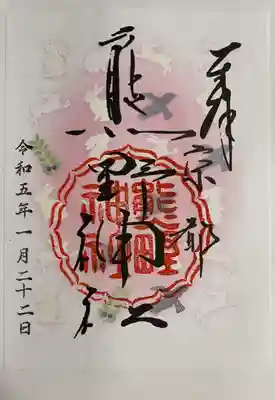 奉拝
熊野神社
熊野
神社
令和五年一月二十二日